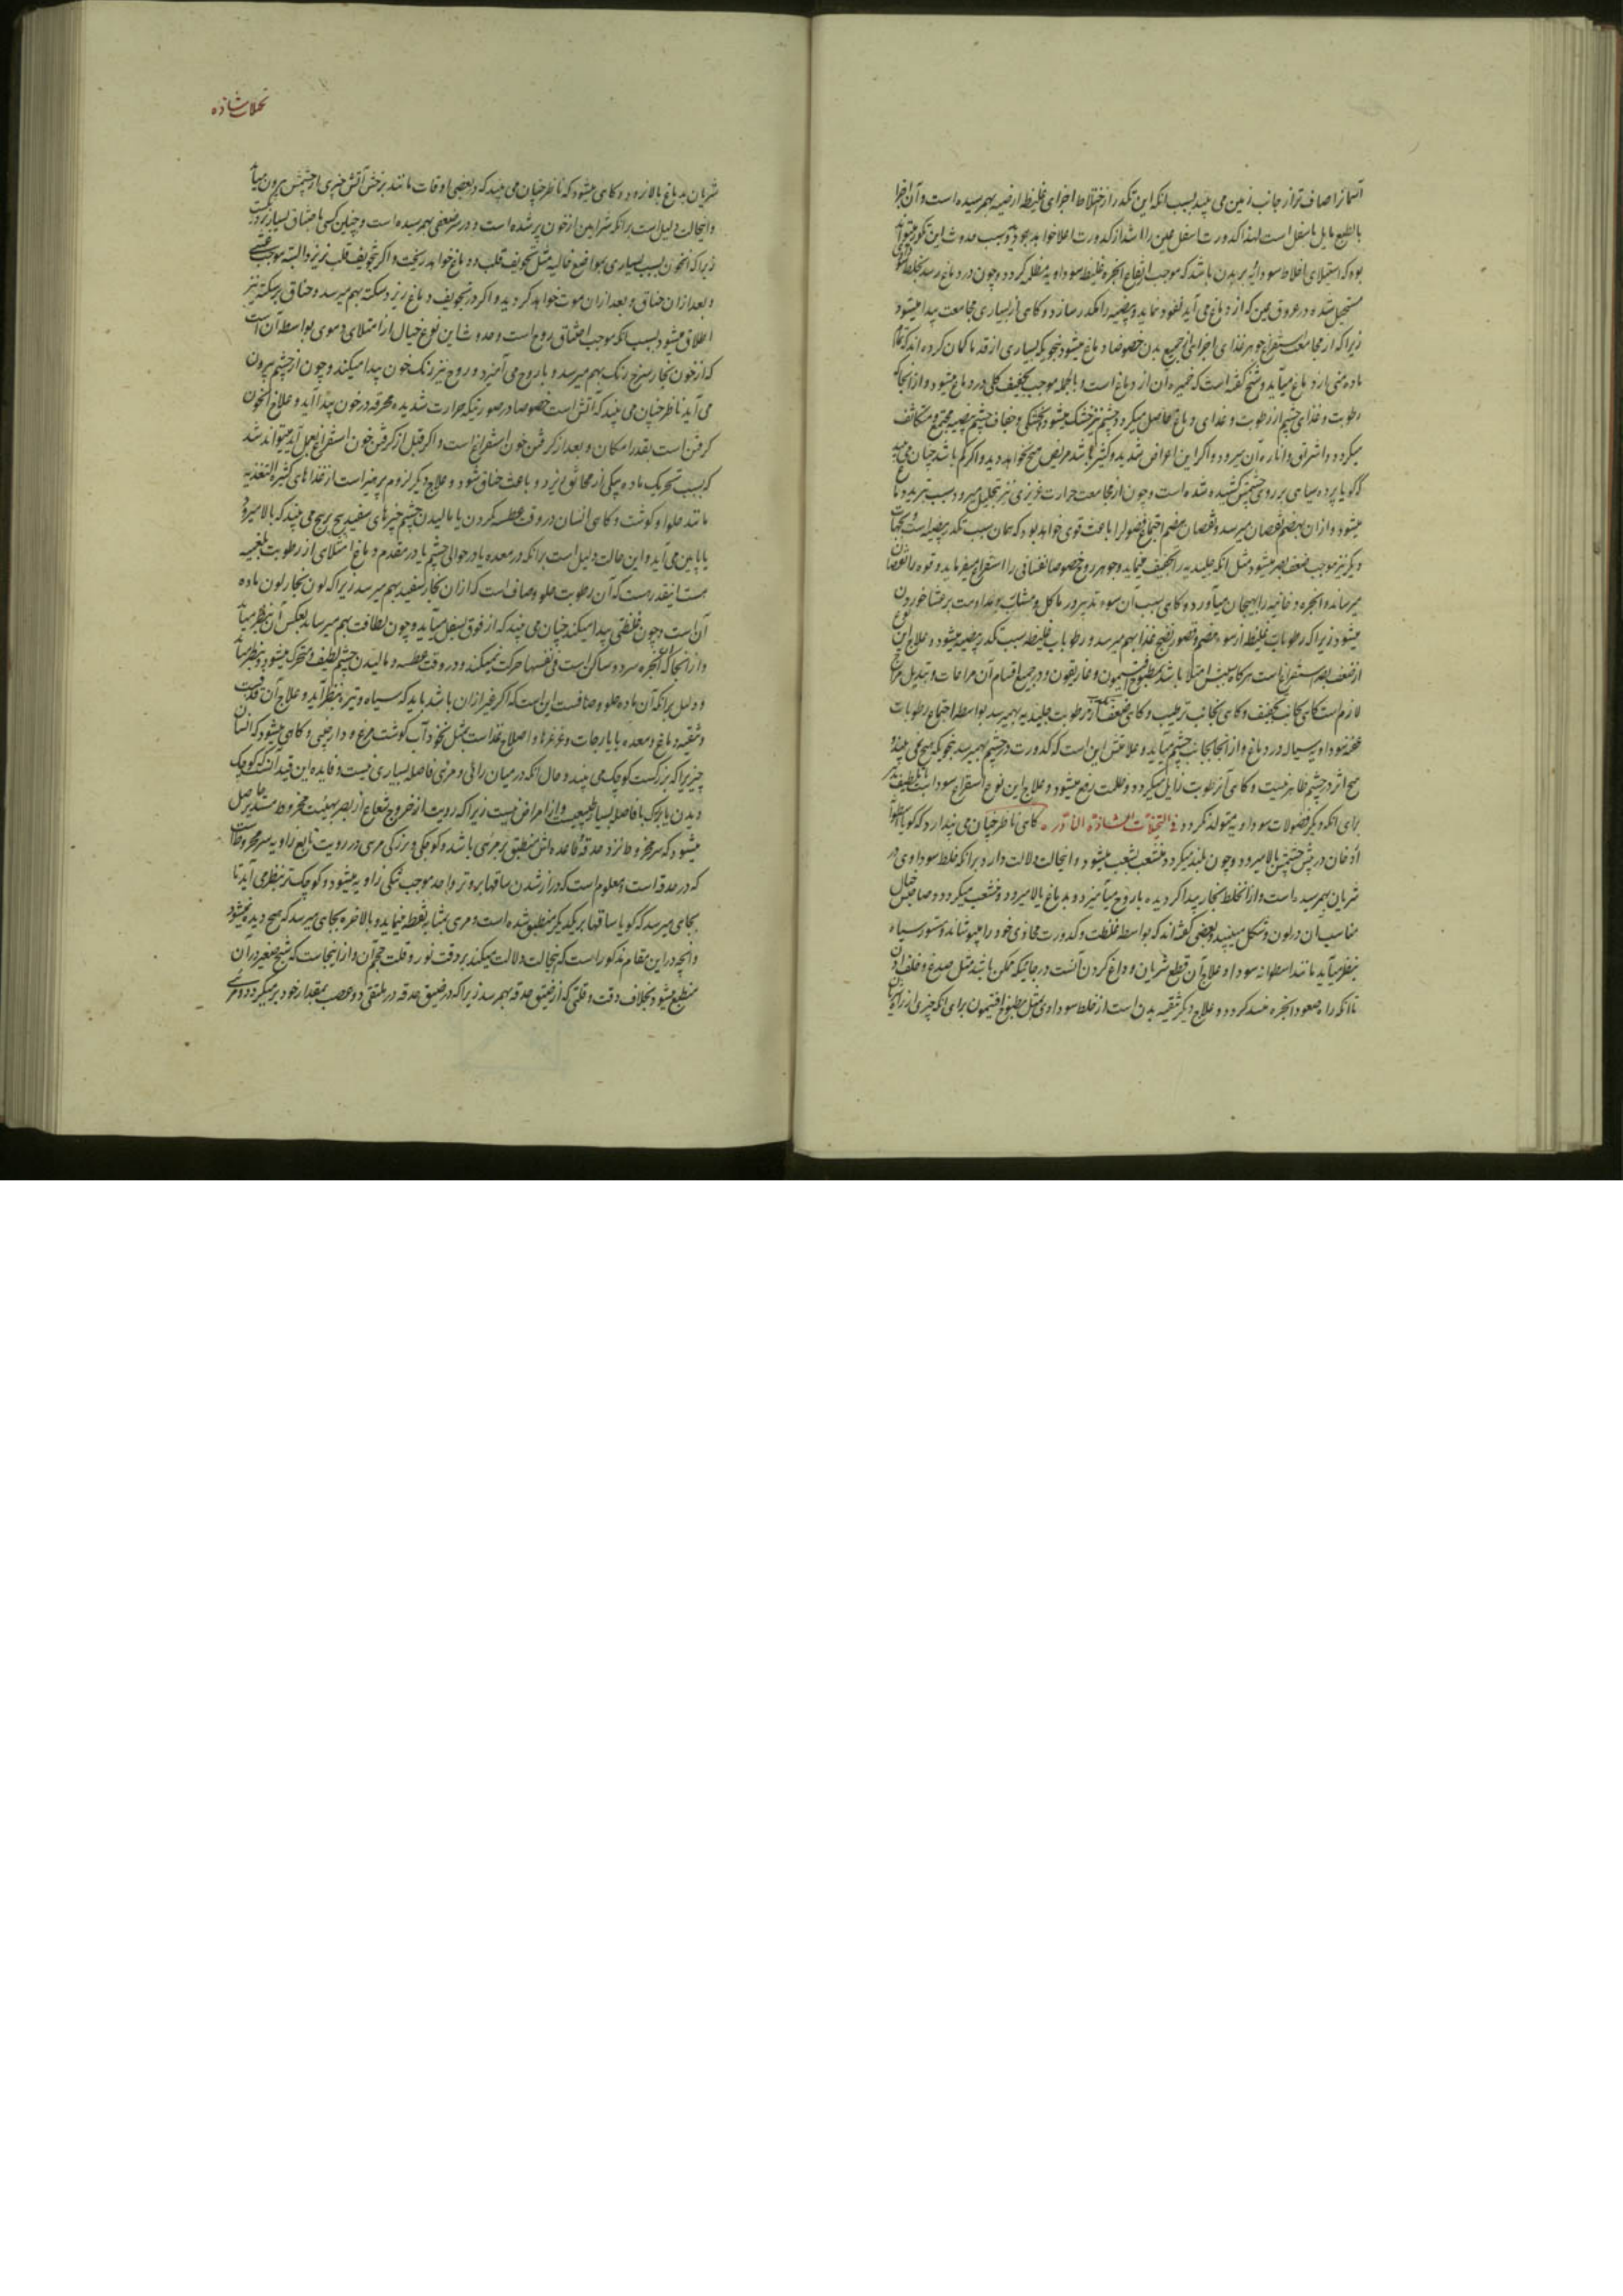 آسمانرا صاف تر از جانب زمین می بیند بسبب انکه این تکدر از اختلاط اجزای غلیظ ارضیه بهم رسیده است و آن اجزا
بالطبع مایل باسفل است لهذا کدورت اسفل عین را اشد از کدورت اعلا خواهد بود و سبب حدوث این تکدر میتواند
بود که استیلای اخلاط سودائیه بر بدن باشد که موجب ارتفاع ابخره غلیظ سوداویه مظلمه گردد و چون در دماغ رسد
مستحیل شده در عروق عین که از دماغ می آید نفوذ نماید و بیضیه را مکدر سازد و کاهی از بسیاری مجامعت پیدا میشود
زیرا که از مجامعت استفراغ جوهر غذای اجزا از جمیع بدن خصوصا دماغ میشود بنحویکه بسیاری از قدما کمان کرده اند که تمام
ماده منی از دماغ میآید و شیخ کفته است که خمیره آن از دماغ است و بالجمله موجب تجفیف کلی در دماغ میشود و از انجا که
رطوبت و غذای چشم از رطوبت و غذای دماغ حاصل میکردد چشم نیز خشک میشود و بخشکی و جفاف چشم بیضیه مجتمع و متکاثف
میکردد و اشراق و اناره آن میرود و اکر این اعراض شدید و کثیر باشد مریض هیچ نخواهد دید و اکر کم باشد چنان می بیند
که کویا پرده سیاهی بر روی چشمش کشیده شده است و چون از مجامعت حرارت غریزی نیز بتحلیل میرود سبب تبرید دماغ
میشود و از ان بهضم نقصان میرسد و نقصان هضم اجتماع فضول را باعث قوی خواهد بود که همان سبب تکدر بیضیه است
دیکر نیز موجب ضعف بصر میشود مثل انکه جلیدیه را تجفیف مینماید و جوهر روح خصوصا نفسانی را استفراغ میفرماید و قوه را نقصان
میرساند و ابخره دخانیه را بهیجان میآورد و کاهی سبب آن سوء تدبیر در ماکل و مشارب و مداومت بر عشا خوردن
میشود زیرا که رطوبات غلیظ از سوء هضم و قصور نضج غذا بهم میرسد و رطوبات غلیظه سبب تکدر بیضیه میشود و علاج این نوع
از ضعف بصر استفراغ است هرکاه سببش امتلا باشد بمطبوخ افتیمون و غاریقون و در جمیع اقسام آن مراعات و تبدیل مزاج
لازم است کاهی بجانب تجفیف و کاهی بجانب ترطیب و کاهی ضعف بصر از رطوبت جلیدیه بهم میرسد بواسطه اجتماع رطوبات
سیاله در دماغ و از انجا بجانب چشم میآید و علامتش این است که کدورت در چشم بهم میرسد بنحویکه هیچ نمی بیند و
هیچ اثر در چشم ظاهر نیست و کاهی آن رطوبت زایل میکردد و ظلمت رفع میشود و علاج این نوع استفراغ سودا است
برای انکه دیکر فضولات سوداویه متولد نکردد فی التخیلات الشاذه النادره کاهی ناظر چنان می پندارد که کویا اسطوانه
از دخان در پیش چشمش بالا میرود و چون بلند میکردد منشعب بشعب میشود و اینحالت دلالت دارد بر انکه خلط سوداوی در
شریان بهم رسیده است و از انخلط بخار پیدا کردیده با روح میآمیزد و بدماغ بالا میرود و منشعب میکردد و صاحبش خیال
مناسب آن در لون و شکل می بیند و بعضی کفته اند که بواسطه غلظت و کدورت محاذی خود را میپوشاند و مستور سیاه
بنظر میآید مانند اسطوانه سودا و علاج آن قطع شریان و داغ کردن آنست در جائیکه ممکن باشد مثل صدغ و خلف اذن
تا انکه راه صعود ابخره منسد کردد و علاج دیکر تنقیه بدن است از خلط سوداوی بمثل مطبوخ افتیمون برای انکه چیزی از راه
تخیلات شاذه
شریان بدماغ بالا نرود و کاهی میشود که ناظر چنان می بیند که در بعضی اوقات مانند درخش آتش چیزی از چشمش بیرون میآید
و اینحالت دلیل است بر انکه شرایین از خون پر شده است و در سر ضعفی بهم رسیده است و چنین کسی باختناق بسیار نزدیکست
زیرا که انخون بسبب بسیاری بمواضع خالیه مثل تجویف قلب و دماغ خواهد ریخت و اکر بتجویف قلب بریزد البته موجب غشی
و بعد از ان خناق و بعد از ان موت خواهد کردید و اکر در تجویف دماغ ریزد سکته بهم میرسد و خناق بر سکته نیز
اطلاق میشود بسبب انکه موجب اختناق روح است و حدوث این نوع خیال از امتلای دموی بواسطه آن است
که از خون بخار سرخ رنک بهم میرسد و با روح می آمیزد و روح نیز رنک خون پیدا میکند و چون از چشم بیرون
می آید ناظر چنان می بیند که آتش است خصوصا در صورتیکه حرارت شدیده محرقه در خون پیدا آید و علاج انخون
کرفتن است بقدر امکان و بعد از کرفتن خون استفراغ است و اکر قبل از کرفتن خون استفراغ بعمل آید میتواند شد
که بسبب تحریک ماده بیکی از مخانق ریزد و باعث خناق شود و علاج دیکر لزوم پرهیز است از غذاهای کثیرة التغذیه
مانند حلوا و کوشت و کاهی انسان در وقت عطسه کردن یا بمالیدن چشم چیزهای سفید پیچ پیچ می بیند که بالا میرود
یا پایین می آید و این حالت دلیل است بر انکه در معده یا در حوالی چشم یا در مقدم دماغ امتلای از رطوبت بلغمیه
هست اینقدر هست که آن رطوبت حلو و صاف است که از ان بخار سفید بهم میرسد زیرا که لون بخار لون ماده
آن است و چون غلظتی پیدا میکند چنان می بیند که از فوق بسفل میآید و چون لطافت بهم میرساند بعکس آن بنظر میآید
و از انجا که ابخره سرد و ساکن است فی نفسها حرکت نمیکند و در وقت عطسه و مالیدن چشم لطیف و متحرک میشود و بنظر میآید
و دلیل بر انکه آن ماده حلو و صافست این است که اکر غیر از ان باشد باید که سیاه و تیره بنظر آید و علاج آن قی است
و تنقیه دماغ و معده بایارجات و غرغرها و اصلاح غذا است بمثل نخود آب کوشت مرغ و دارچینی و کاهی میشود که انسان
چیزیرا که بزرکست کوچک می بیند و حال انکه در میان رائی و مرئی فاصله بسیاری نیست و فایده این قید آنست که کوچک
دیدن با بزرک با فاصله بسیار طبیعیست و از امراض نیست زیرا که رویت از خروج شعاع از بصر بهیئت مخروط مستدیر حاصل
میشود که سر مخروط نزد حدقه و قاعده اش منطبق بر مرئی باشد و کوچکی و بزرکی مرئی در رویت تابع زاویه سر مخروط است
که در حدقه است و معلوم است که دراز شدن ساقها بر وتر واحد موجب تنکی زاویه میشود و کوچکتر بنظر می آید تا
بجای میرسد که کویا ساقها بر یکدیکر منطبق شده است و مرئی بمثابه نقطه مینماید و بالاخره بجای میرسد که هیچ دیده نمیشود
و انچه در این مقام مذکور است که اینحالت دلالت میکند بر دقت نور و قلت حجم آن و از اینجاست که شبح صغیر در ان
منطبع میشود بخلاف دقت و قلتی که از ضیق حدقه بهم رسد زیرا که در ضیق حدقه در ملتقی دو عصب بمقدار خود بر میکردد و مرئی